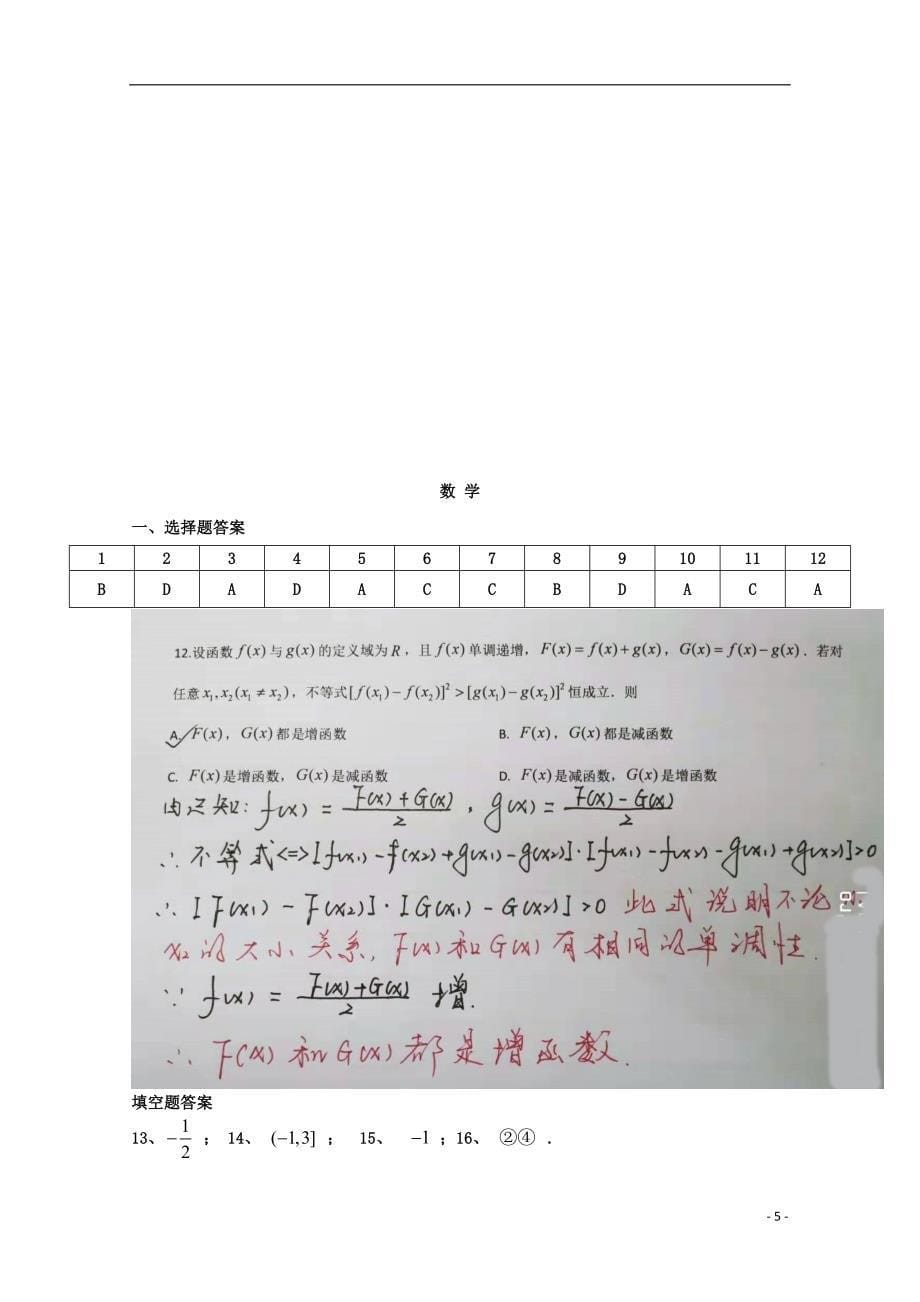 数 学
一、选择题答案
1 2 3 4 5 6 7 8 9 10 11 12
B D A D A C C B D A C A
12.设函数 f(x) 与 g(x) 的定义域为 R，且 f(x) 单调递增，F(x) = f(x) + g(x)，G(x) = f(x) − g(x)．若对
任意 x₁, x₂ (x₁ ≠ x₂)，不等式 [f(x₁) − f(x₂)]² > [g(x₁) − g(x₂)]² 恒成立．则
A. F(x)，G(x) 都是增函数 B. F(x)，G(x) 都是减函数
C. F(x) 是增函数，G(x) 是减函数 D. F(x) 是减函数，G(x) 是增函数
由已知: f(x) = (F(x)+G(x))/2 , g(x) = (F(x)−G(x))/2
∴ 不等式<=>[f(x₁)−f(x₂)+g(x₁)−g(x₂)]·[f(x₁)−f(x₂)−g(x₁)+g(x₂)]>0
∴ [F(x₁)−F(x₂)]·[G(x₁)−G(x₂)]>0 此式说明不论
x₂的大小关系, F(x)和G(x)有相同的单调性.
∵ f(x) = (F(x)+G(x))/2 增.
∴ F(x)和G(x)都是增函数.
填空题答案
13、−1/2 ； 14、 (−1,3] ； 15、 −1 ；16、 ②④ ．
- 5 -